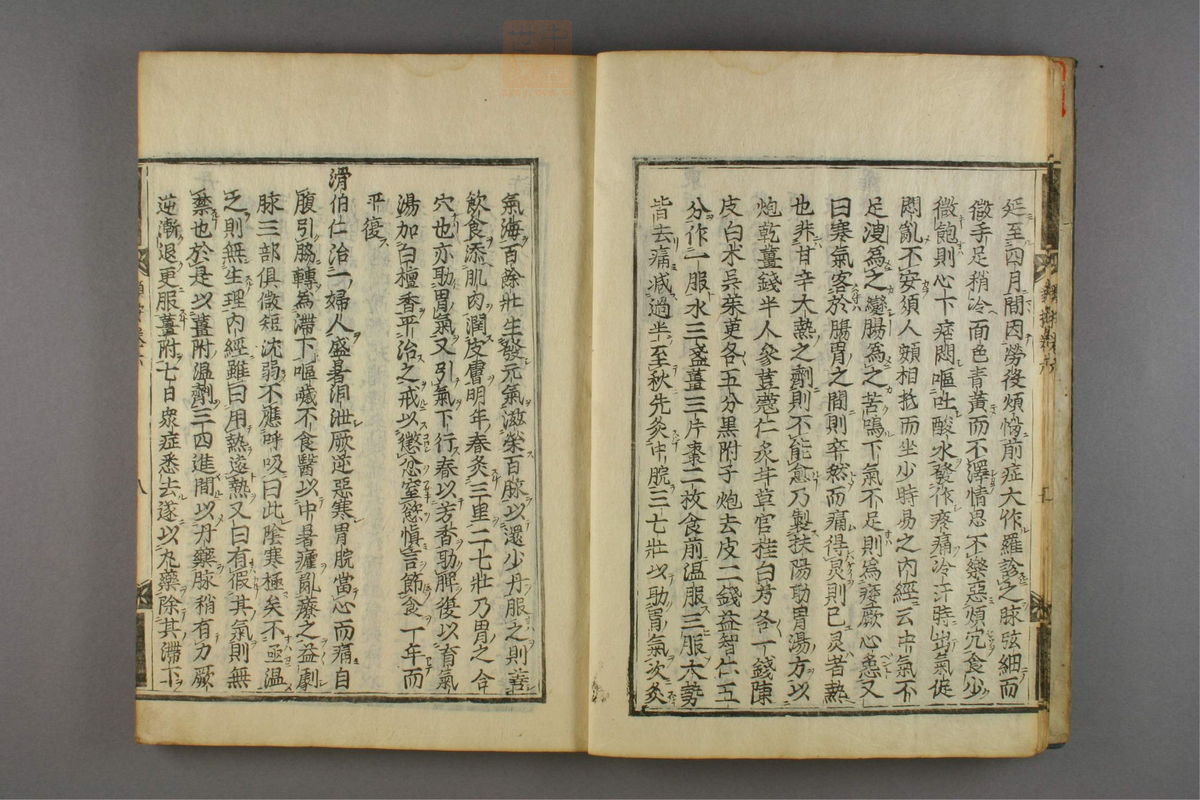 延至四月間因勞役煩惱前症大作羅診之脉弦細而
微手足稍冷面色青黃而不澤情思不樂惡煩冗食少
微飽則心下痞悶嘔吐酸水發作疼痛冷汗時出氣促
悶亂不安須人頞相抵而坐少時易之內經云中氣不
足溲為之變腸為之苦鳴下氣不足則為痿厥心悗又
曰寒氣客於腸胃之間則卒然而痛得炅則已炅者熱
也非甘辛大熱之劑則不能愈乃製扶陽助胃湯方以
炮乾薑錢半人參荳蔻仁炙甘草官桂白芍各一錢陳
皮白术吳茱萸各五分黑附子炮去皮二錢益智仁五
分作一服水三盞薑三片棗二枚食前温服三服大勢
皆去痛減過半至秋先灸中脘三七壯以助胃氣次灸
氣海百餘壯生發元氣滋榮百脉以還少丹服之則善
飲食添肌肉潤皮膚明年春灸三里二七壯乃胃之合
穴也亦助胃氣又引氣下行春以芳香助脾復以育氣
湯加白檀香平治之戒以懲忿窒慾慎言節食一年而
平復
滑伯仁治一婦人盛暑洞泄厥逆惡寒胃脘當心而痛自
腹引脇轉為滯下嘔噦不食醫以中暑癨亂療之益劇
脉三部俱微短沈弱不應呼吸曰此陰寒極矣不亟温
之則無生理內經雖曰用熱遠熱又曰有假其氣則無
禁也於是以薑附温劑三四進間以丹藥脉稍有力厥
逆漸退更服薑附七日衆症悉去遂以丸藥除其滯下
八